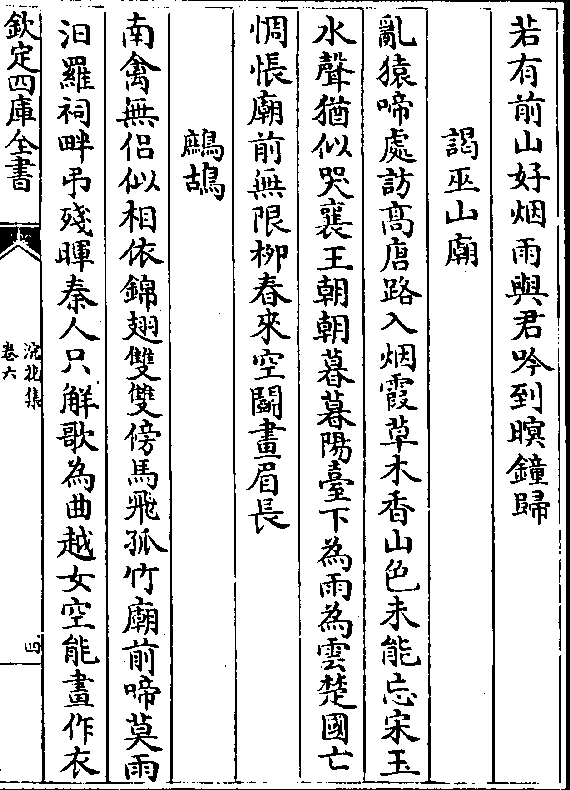 若有前山好烟雨與君吟到暝鐘歸
謁巫山廟
亂猿啼處訪髙唐路入烟霞草木香山色未能忘宋玉
水聲猶似哭襄王朝朝暮暮陽臺下為雨為雲楚國亡
惆悵廟前無限栁春來空鬭畫眉長
鷓鴣
南禽無侣似相依錦翅雙雙傍馬飛孤竹廟前啼莫雨
汨羅祠畔弔殘暉秦人只解歌為曲越女空能畫作衣
欽定四庫全書
浣花集
卷六
四